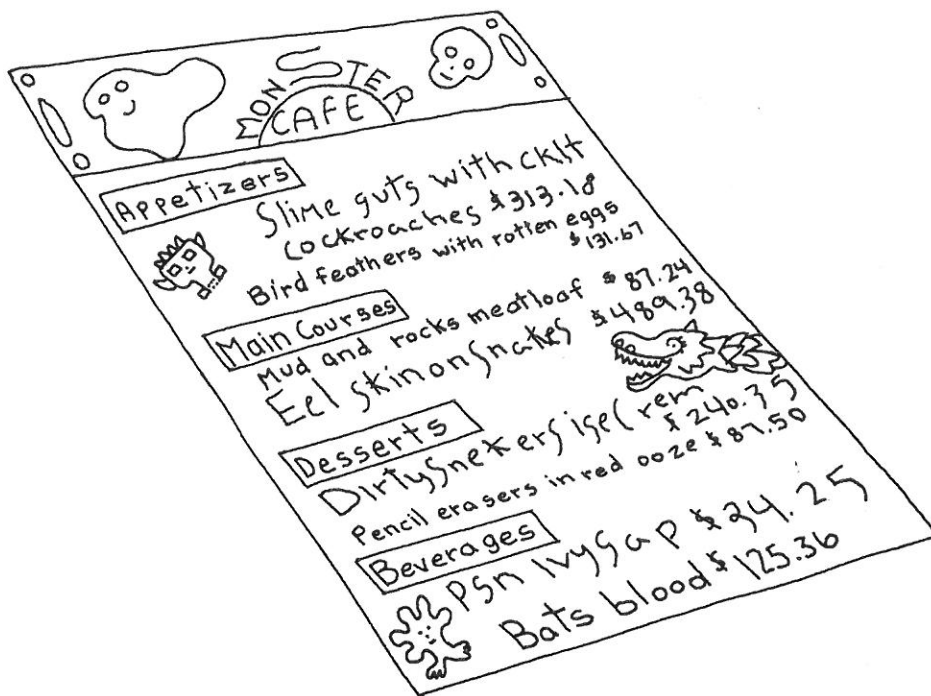 MONSTER
CAFE
Appetizers
Slime guts with cklt
cockroaches $313.18
Bird feathers with rotten eggs
$131.67
Main Courses
Mud and rocks meatloaf $87.24
Eel skin on snakes $489.38
Desserts
Dirty snekers ise(rem
$240.35
Pencil erasers in red ooze $87.50
Beverages
Psn ivy sap $34.25
Bats blood $125.36